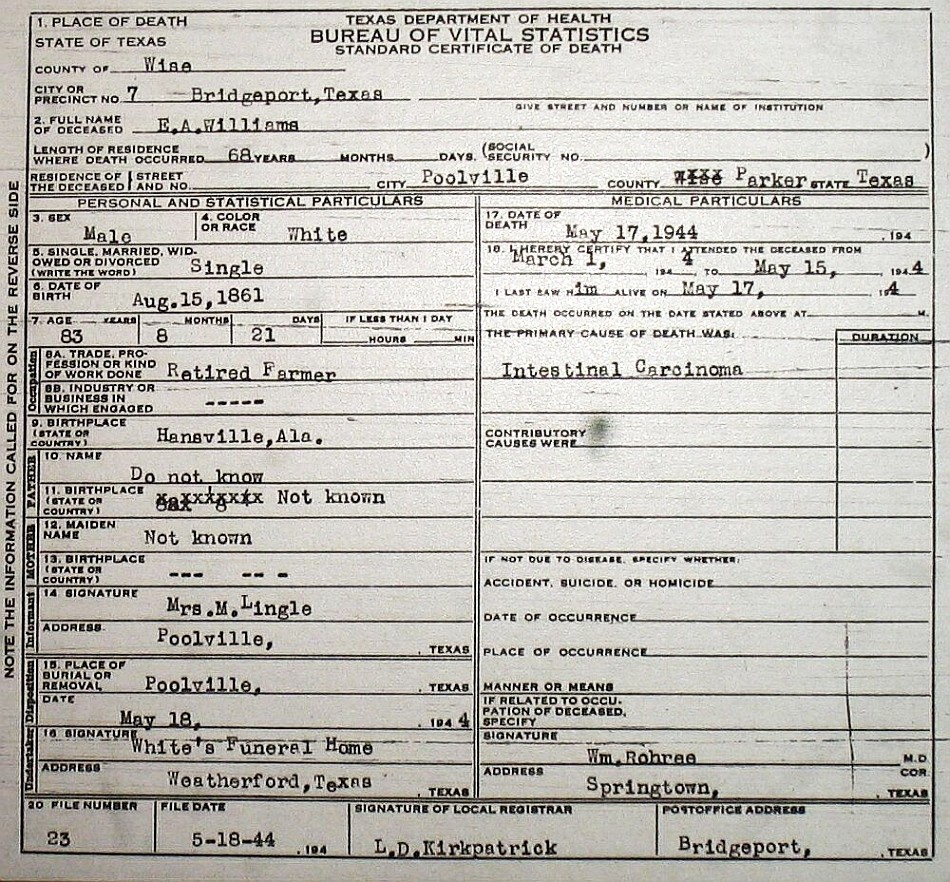 TEXAS DEPARTMENT OF HEALTH
BUREAU OF VITAL STATISTICS
STANDARD CERTIFICATE OF DEATH
1. PLACE OF DEATH
STATE OF TEXAS
COUNTY OF Wise
CITY OR PRECINCT NO. 7 Bridgeport,Texas
GIVE STREET AND NUMBER OR NAME OF INSTITUTION
2. FULL NAME OF DECEASED E.A.Williams
LENGTH OF RESIDENCE WHERE DEATH OCCURRED 68 YEARS MONTHS DAYS. (SOCIAL SECURITY NO. )
RESIDENCE OF THE DECEASED STREET AND NO. CITY Poolville COUNTY Parker STATE Texas
PERSONAL AND STATISTICAL PARTICULARS
3. SEX Male
4. COLOR OR RACE White
5. SINGLE, MARRIED, WIDOWED OR DIVORCED (WRITE THE WORD) Single
6. DATE OF BIRTH Aug.15,1861
7. AGE YEARS MONTHS DAYS IF LESS THAN 1 DAY
83 8 21 HOURS MIN
Occupation
8A. TRADE, PROFESSION OR KIND OF WORK DONE Retired Farmer
8B. INDUSTRY OR BUSINESS IN WHICH ENGAGED -----
9. BIRTHPLACE (STATE OR COUNTRY) Hansville,Ala.
FATHER
10. NAME Do not know
11. BIRTHPLACE (STATE OR COUNTRY) Not known
MOTHER
12. MAIDEN NAME Not known
13. BIRTHPLACE (STATE OR COUNTRY) --- -- -
Informant
14 SIGNATURE Mrs.M.Lingle
ADDRESS Poolville, , TEXAS
Disposition
15. PLACE OF BURIAL OR REMOVAL Poolville, , TEXAS
DATE May 18, , 194 4
Undertaker
16 SIGNATURE White's Funeral Home
ADDRESS Weatherford,Texas , TEXAS
MEDICAL PARTICULARS
17. DATE OF DEATH May 17,1944 , 194
18. I HEREBY CERTIFY THAT I ATTENDED THE DECEASED FROM
March 1, 194 4 TO May 15, , 194 4
I LAST SAW Him ALIVE ON May 17, 19 4
THE DEATH OCCURRED ON THE DATE STATED ABOVE AT M.
THE PRIMARY CAUSE OF DEATH WAS: DURATION
Intestinal Carcinoma
CONTRIBUTORY CAUSES WERE
IF NOT DUE TO DISEASE, SPECIFY WHETHER:
ACCIDENT, SUICIDE, OR HOMICIDE
DATE OF OCCURRENCE
PLACE OF OCCURRENCE
MANNER OR MEANS
IF RELATED TO OCCUPATION OF DECEASED, SPECIFY
SIGNATURE Wm.Rohree M.D. COR.
ADDRESS Springtown, , TEXAS
20 FILE NUMBER 23
FILE DATE 5-18-44 , 194
SIGNATURE OF LOCAL REGISTRAR L.D.Kirkpatrick
POSTOFFICE ADDRESS Bridgeport, , TEXAS
NOTE THE INFORMATION CALLED FOR ON THE REVERSE SIDE